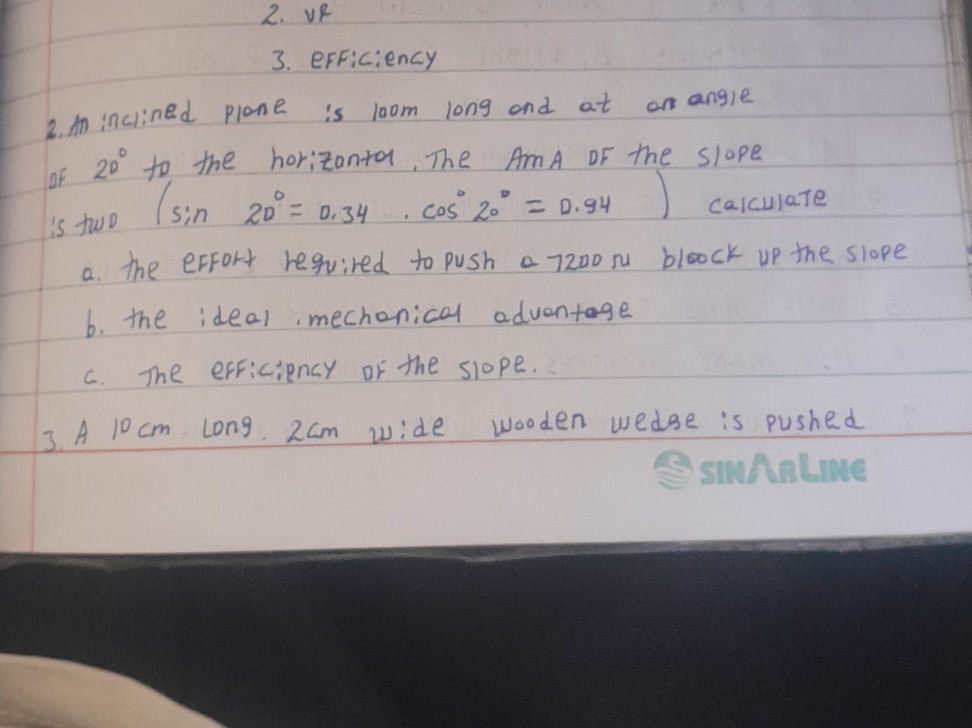 2. VR
3. efficiency
2. An inclined plane is 100m long and at an angle
of 20° to the horizontal. The AMA of the slope
is two (sin 20° = 0.34 . cos° 20° = 0.94) calculate
a. the effort required to push a 7200 N bloock up the slope
b. the ideal . mechanical advantage
c. The efficiency of the slope.
3. A 10 cm Long. 2cm wide wooden wedge is pushed
SINARLINE